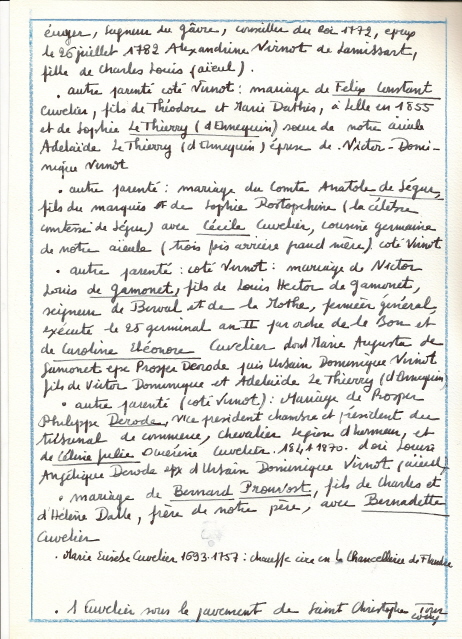 écuyer, seigneur du Gâvre, conseiller du Roi 1772, epouse
le 26 juillet 1782 Alexandrine Virnot de Lamissart,
fille de Charles Louis (aïeul).
• autre parenté coté Virnot : mariage de Felix Constant
Cuvelier, fils de Théodore et Marie Dathis, à Lille en 1855
et de Sophie Le Thierry (d'Ennequin) soeur de notre aieule
Adelaïde Le Thierry (d'Ennequin) épouse de Victor-Domi-
nique Virnot
• autre parenté : mariage du Comte Anatole de Ségur,
fils du marquis et de Sophie Rostopchine (la célèbre
comtesse de Ségur) avec Cécile Cuvelier, cousine germaine
de notre aieule (trois fois arrière grand mère) coté Virnot
• autre parenté : coté Virnot : mariage de Victor
Louis de Gamonet, fils de Louis Hector de Gamonet,
seigneur de Berval et de la Mothe, fermier général,
exécuté le 25 germinal an II par ordre de Le Bon et
de Caroline Eléonore Cuvelier dont Marie Augusta de
Gamonet epx Prosper Derode puis Urbain Dominique Virnot
fils de Victor Dominique et Adelaïde Le Thierry (d'Ennequin)
• autre parenté (coté Virnot) : Mariage de Prosper
Philippe Derode, vice président chambre et président du
tribunal de commerce, chevalier légion d'honneur, et
de Céline Julie Cuvelier. 1841-1870. d'où Louise
Angélique Derode epx d'Urbain Dominique Virnot (aïeul)
• mariage de Bernard Prouvost, fils de Charles et
d'Hélène Dalle, frère de notre père, avec Bernadette
Cuvelier
. Marie Eusèbe Cuvelier 1693-1757 : chauffe cire en la Chancellerie de Flandre
• 1 Cuvelier sous le pavement de Saint Christophe Tourcoing